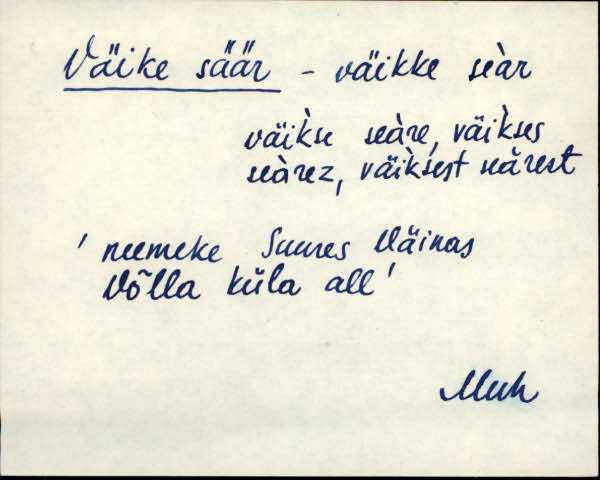 Väike säär - väikke seàr
väik̀se seàre, väik̀ses
seàrez, väik̀sest seàrest
'neemeke Suures Väinas
Võlla küla all'
Muh